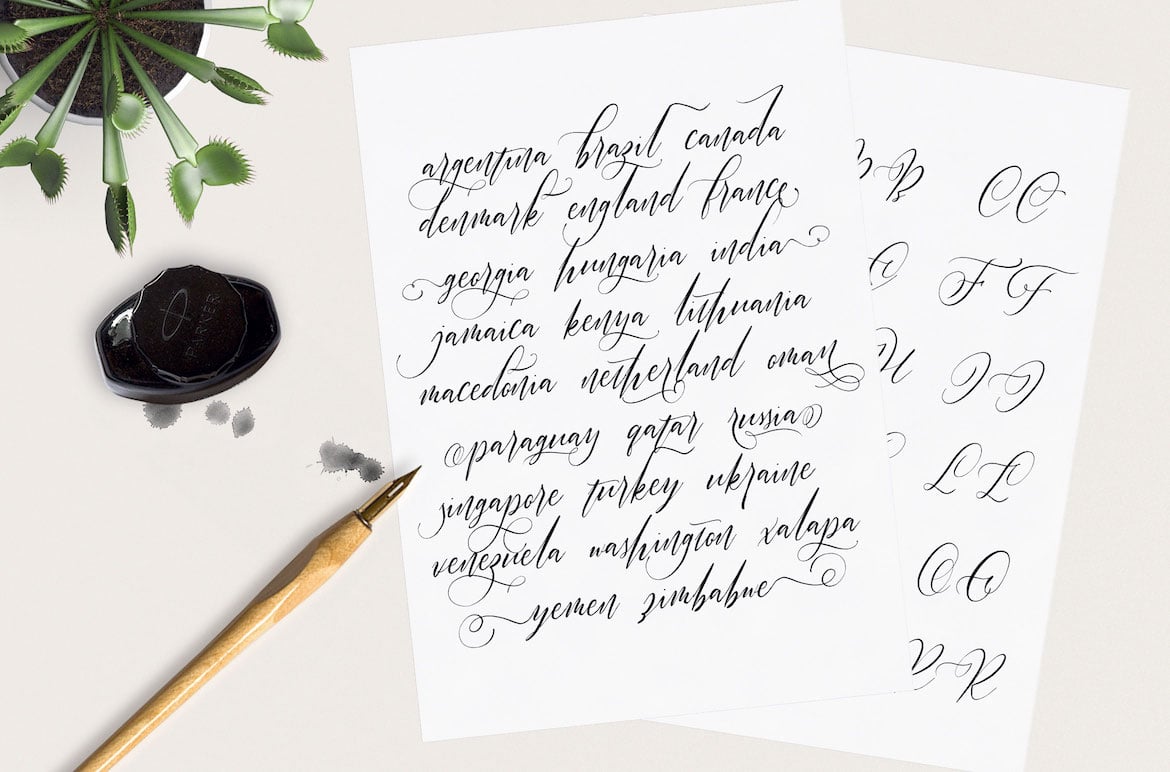 argentina brazil canada
denmark england france
georgia hungaria india
jamaica kenya lithuania
macedonia netherland oman
paraguay qatar russia
singapore turkey ukraine
venezuela washington xalapa
yemen zimbabwe
PARKER
B B C C
F F
I I
L L
O O
R R